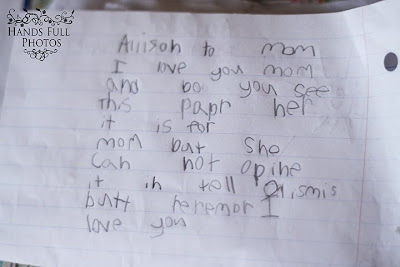 HANDS FULL
PHOTOS
Allison to mom
I love you mom
and bo you see
this papr her
it is for
mom but she
can not opine
it in tell Crismis
butt remor I
love you